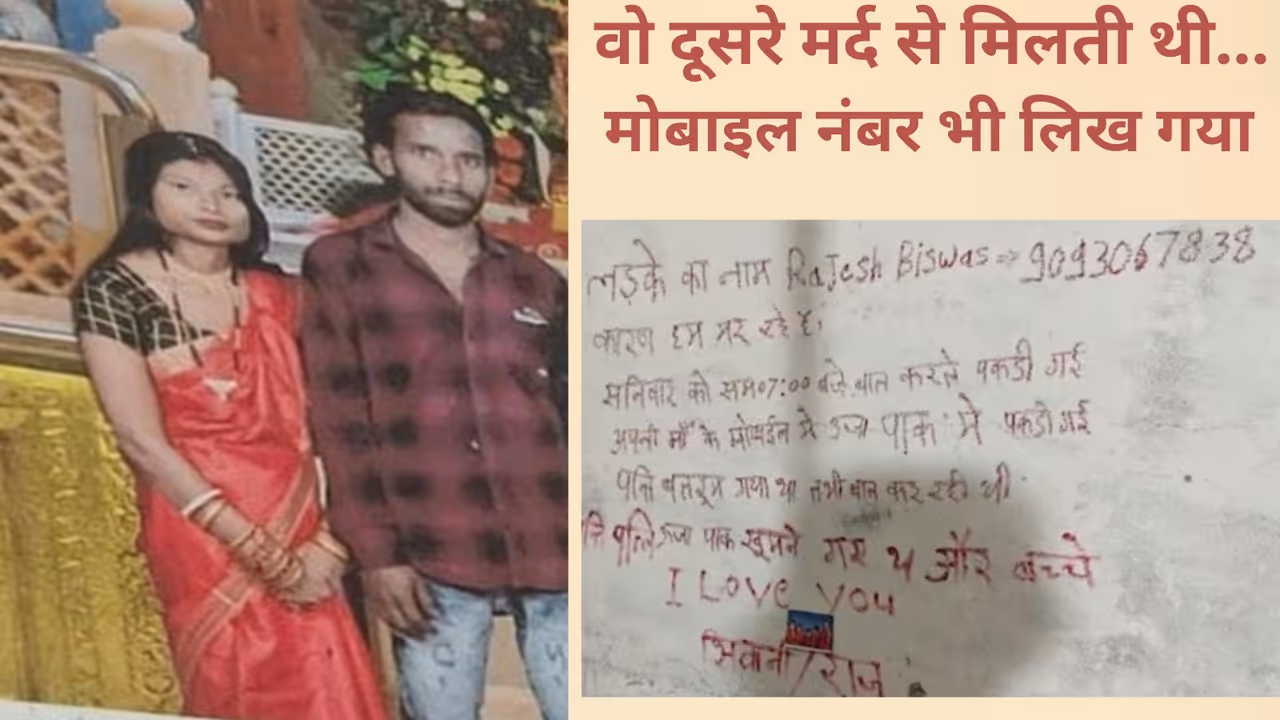 वो दूसरे मर्द से मिलती थी...
मोबाइल नंबर भी लिख गया
लड़के का नाम RaJesh Biswas => 9093067838
कारण हम मर रहे है।
सनिवार को सम07:00 बजे बात करते पकडी गई
अपनी माँ के मोबाईल से उर्जा पाक में पकडी गई
पति बतरूम गया था तभी बात कर रही थी
पत्नि उर्जा पाक घूमने गए थे और बच्चे
I LOVe You
शिवानी/राज